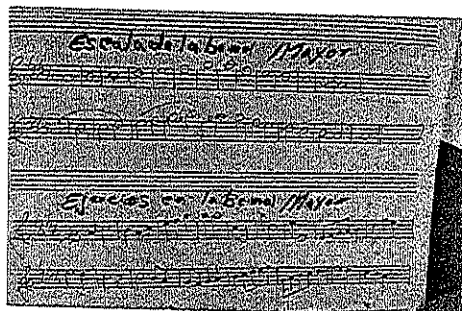 Escala de la bemol Mayor
Ejercicios en la bemol Mayor